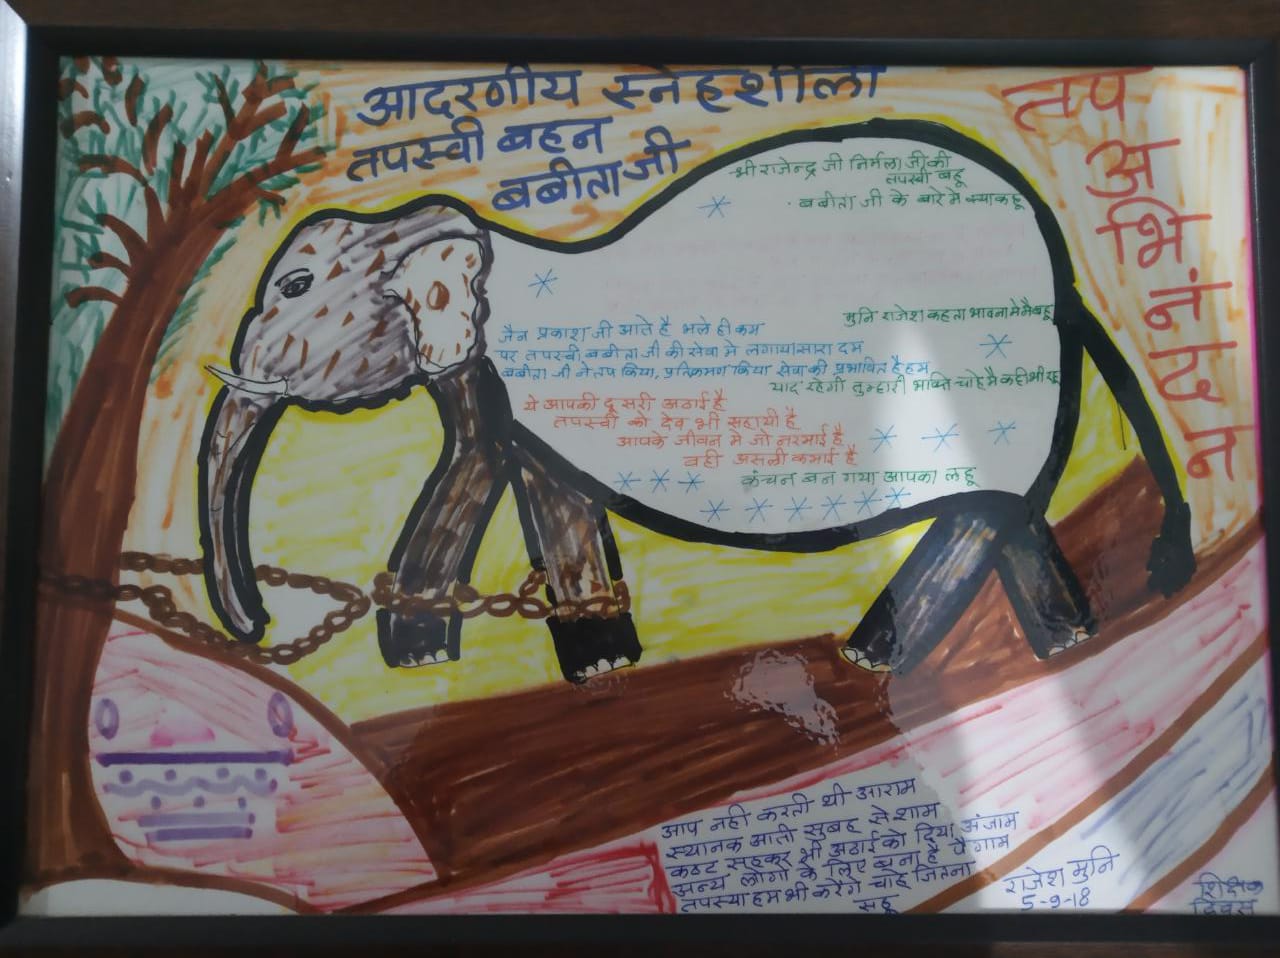 आदरणीय स्नेहशीला
तपस्वी बहन
बबीता जी
तप
अभिनंदन
श्री राजेन्द्र जी निर्मला जी की
तपस्वी बहू
बबीता जी के बारे मे क्या कहू
मुनि राजेश कहता भावना मे मै बहू
जैन प्रकाश जी आते है भले ही कम
पर तपस्वी बबीता जी की सेवा मे लगाया सारा दम
बबीता जी ने तप किया, प्रतिक्रमण किया सेवा की प्रभावित है हम
याद रहेगी तुम्हारी भक्ति चाहे मै कही भी रहू
ये आपकी दूसरी अठाई है
तपस्वी को देव भी सहायी है
आपके जीवन मे जो नरमाई है
वही असली कमाई है
कंचन बन गया आपका लहू
आप नही करती थी आराम
स्थानक आती सुबह से शाम
कष्ट सहकर भी अठाई को दिया अंजाम
अन्य लोगो के लिए बना है पैगाम
तपस्या हम भी करेंगे चाहे जितना
सहू
राजेश मुनि
5-9-18
शिक्षक
दिवस